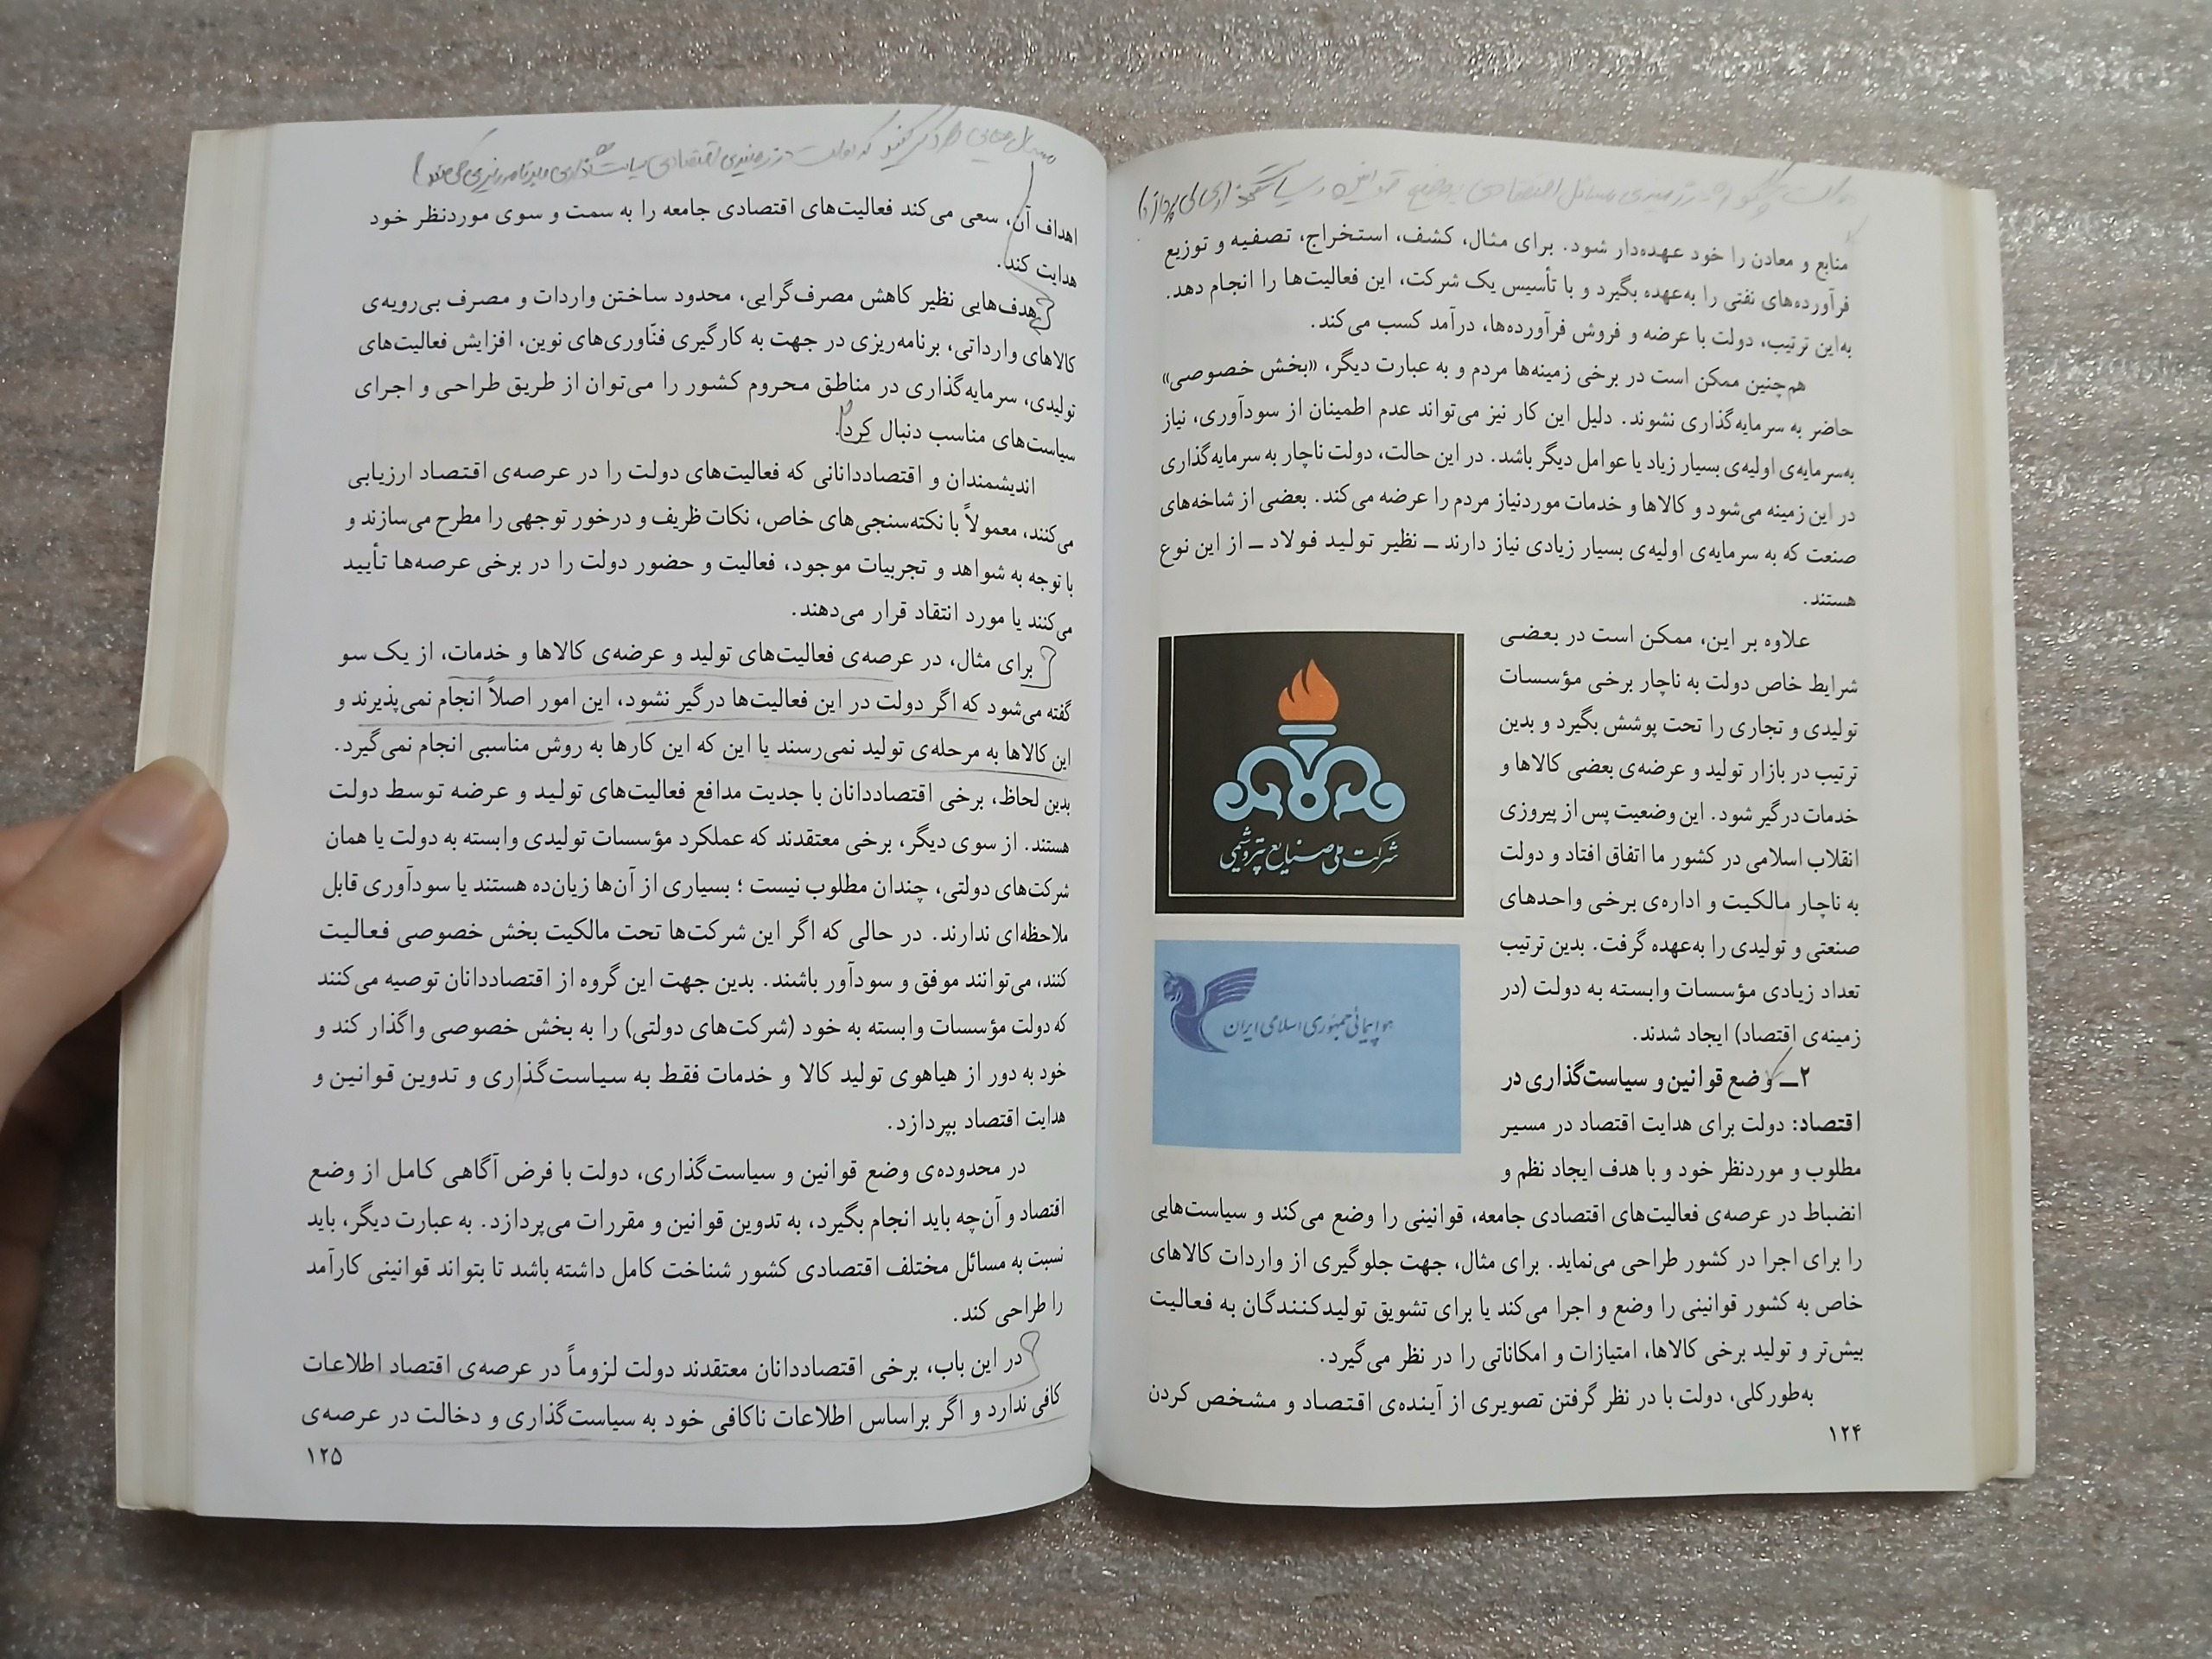 دولت چگونه در زمینه‌ی مسائل اقتصادی به وضع قوانین و سیاستگذاری می‌پردازد
منابع و معادن را خود عهده‌دار شود. برای مثال، کشف، استخراج، تصفیه و توزیع
فرآورده‌های نفتی را به‌عهده بگیرد و با تأسیس یک شرکت، این فعالیت‌ها را انجام دهد.
به‌این ترتیب، دولت با عرضه و فروش فرآورده‌ها، درآمد کسب می‌کند.
هم‌چنین ممکن است در برخی زمینه‌ها مردم و به عبارت دیگر، «بخش خصوصی»
حاضر به سرمایه‌گذاری نشوند. دلیل این کار نیز می‌تواند عدم اطمینان از سودآوری، نیاز
به‌سرمایه‌ی اولیه‌ی بسیار زیاد یا عوامل دیگر باشد. در این حالت، دولت ناچار به سرمایه‌گذاری
در این زمینه می‌شود و کالاها و خدمات موردنیاز مردم را عرضه می‌کند. بعضی از شاخه‌های
صنعت که به سرمایه‌ی اولیه‌ی بسیار زیادی نیاز دارند ــ نظیر تولید فولاد ــ از این نوع
هستند.
علاوه بر این، ممکن است در بعضی
شرایط خاص دولت به ناچار برخی مؤسسات
تولیدی و تجاری را تحت پوشش بگیرد و بدین
ترتیب در بازار تولید و عرضه‌ی بعضی کالاها و
خدمات درگیر شود. این وضعیت پس از پیروزی
انقلاب اسلامی در کشور ما اتفاق افتاد و دولت
به ناچار مالکیت و اداره‌ی برخی واحدهای
صنعتی و تولیدی را به‌عهده گرفت. بدین ترتیب
تعداد زیادی مؤسسات وابسته به دولت (در
زمینه‌ی اقتصاد) ایجاد شدند.
شرکت ملی صنایع پتروشیمی
هواپیمائی جمهوری اسلامی ایران
۲ــ وضع قوانین و سیاست‌گذاری در
اقتصاد: دولت برای هدایت اقتصاد در مسیر
مطلوب و موردنظر خود و با هدف ایجاد نظم و
انضباط در عرصه‌ی فعالیت‌های اقتصادی جامعه، قوانینی را وضع می‌کند و سیاست‌هایی
را برای اجرا در کشور طراحی می‌نماید. برای مثال، جهت جلوگیری از واردات کالاهای
خاص به کشور قوانینی را وضع و اجرا می‌کند یا برای تشویق تولیدکنندگان به فعالیت
بیش‌تر و تولید برخی کالاها، امتیازات و امکاناتی را در نظر می‌گیرد.
به‌طورکلی، دولت با در نظر گرفتن تصویری از آینده‌ی اقتصاد و مشخص کردن
۱۲۴
اهداف آن، سعی می‌کند فعالیت‌های اقتصادی جامعه را به سمت و سوی موردنظر خود
هدایت کند.
هدف‌هایی نظیر کاهش مصرف‌گرایی، محدود ساختن واردات و مصرف بی‌رویه‌ی
کالاهای وارداتی، برنامه‌ریزی در جهت به کارگیری فنّاوری‌های نوین، افزایش فعالیت‌های
تولیدی، سرمایه‌گذاری در مناطق محروم کشور را می‌توان از طریق طراحی و اجرای
سیاست‌های مناسب دنبال کرد.
اندیشمندان و اقتصاددانانی که فعالیت‌های دولت را در عرصه‌ی اقتصاد ارزیابی
می‌کنند، معمولاً با نکته‌سنجی‌های خاص، نکات ظریف و درخور توجهی را مطرح می‌سازند و
با توجه به شواهد و تجربیات موجود، فعالیت و حضور دولت را در برخی عرصه‌ها تأیید
می‌کنند یا مورد انتقاد قرار می‌دهند.
برای مثال، در عرصه‌ی فعالیت‌های تولید و عرضه‌ی کالاها و خدمات، از یک سو
گفته می‌شود که اگر دولت در این فعالیت‌ها درگیر نشود، این امور اصلاً انجام نمی‌پذیرند و
این کالاها به مرحله‌ی تولید نمی‌رسند یا این که این کارها به روش مناسبی انجام نمی‌گیرد.
بدین لحاظ، برخی اقتصاددانان با جدیت مدافع فعالیت‌های تولید و عرضه توسط دولت
هستند. از سوی دیگر، برخی معتقدند که عملکرد مؤسسات تولیدی وابسته به دولت یا همان
شرکت‌های دولتی، چندان مطلوب نیست؛ بسیاری از آن‌ها زیان‌ده هستند یا سودآوری قابل
ملاحظه‌ای ندارند. در حالی که اگر این شرکت‌ها تحت مالکیت بخش خصوصی فعالیت
کنند، می‌توانند موفق و سودآور باشند. بدین جهت این گروه از اقتصاددانان توصیه می‌کنند
که دولت مؤسسات وابسته به خود (شرکت‌های دولتی) را به بخش خصوصی واگذار کند و
خود به دور از هیاهوی تولید کالا و خدمات فقط به سیاست‌گذاری و تدوین قوانین و
هدایت اقتصاد بپردازد.
در محدوده‌ی وضع قوانین و سیاست‌گذاری، دولت با فرض آگاهی کامل از وضع
اقتصاد و آن‌چه باید انجام بگیرد، به تدوین قوانین و مقررات می‌پردازد. به عبارت دیگر، باید
نسبت به مسائل مختلف اقتصادی کشور شناخت کامل داشته باشد تا بتواند قوانینی کارآمد
را طراحی کند.
در این باب، برخی اقتصاددانان معتقدند دولت لزوماً در عرصه‌ی اقتصاد اطلاعات
کافی ندارد و اگر براساس اطلاعات ناکافی خود به سیاست‌گذاری و دخالت در عرصه‌ی
۱۲۵